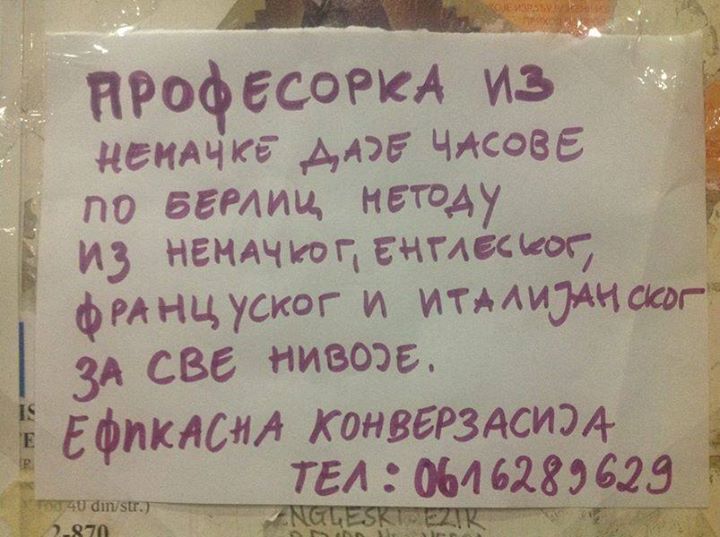 ПРОФЕСОРКА ИЗ
НЕМАЧКЕ ДАЈЕ ЧАСОВЕ
ПО БЕРЛИЦ МЕТОДУ
ИЗ НЕМАЧКОГ, ЕНГЛЕСКОГ,
ФРАНЦУСКОГ И ИТАЛИЈАНСКОГ
ЗА СВЕ НИВОЈЕ.
ЕФИКАСНА КОНВЕРЗАСИЈА
ТЕЛ: 0616289629
din/str.)
2-870
ENGLESKI JEZIK